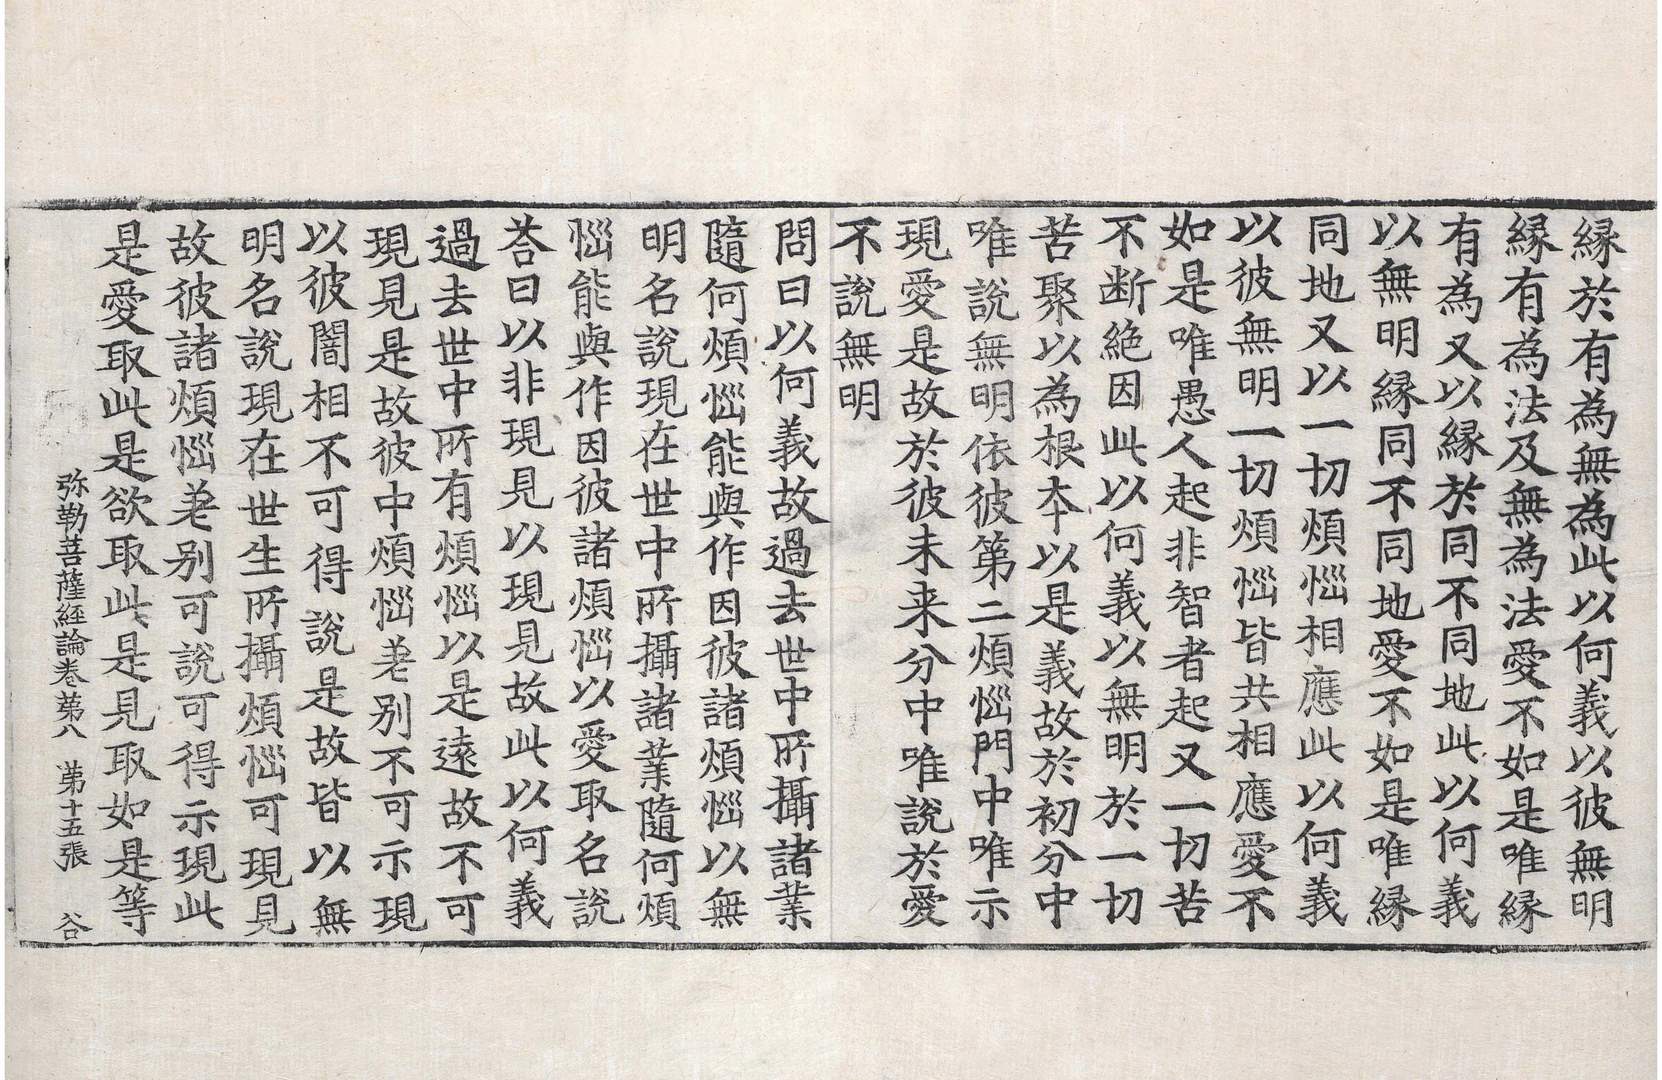 縁於有為無為此以何義以彼無明
縁有為法及無為法愛不如是唯縁
有為又以縁於同不同地此以何義
以無明縁同不同地愛不如是唯縁
同地又以一切煩惱相應此以何義
以彼無明一切煩惱皆共相應愛不
如是唯愚人起非智者起又一切苦
不断絶因此以何義以無明於一切
苦聚以為根本以是義故於初分中
唯説無明依彼第二煩惱門中唯示
現愛是故於彼未来分中唯説於愛
不說無明
問曰以何義故過去世中所攝諸業
隨何煩惱能與作因彼諸煩惱以無
明名說現在世中所攝諸業隨何煩
惱能與作因彼諸煩惱以愛取名說
荅曰以非現見以現見故此以何義
過去世中所有煩惱以是遠故不可
現見是故彼中煩惱差別不可示現
以彼闇相不可得說是故皆以無
明名說現在世生所攝煩惱可現見
故彼諸煩惱差別可說可得示現此
是愛取此是欲取此是見取如是等
弥勒菩薩經論卷苐八 苐十五張 谷